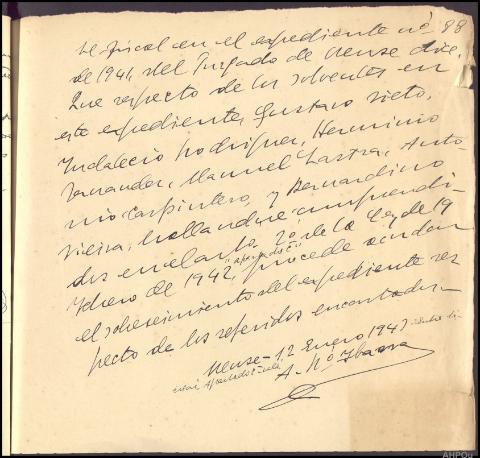 El Fiscal en el expediente nº 88
de 1941, del Juzgado de Orense dice:
Que respecto de los solventes en
este expediente, Gustavo Nieto,
Indalecio Rodriguez, Herminio
Fernandez, Manuel Lastra, Anto-
nio Carpintero, y Bernardino
Vieira, hallandose comprendi-
dos en el arto. 2º de la Ley de 19
"apartado c"
Febrero de 1942, procede acordar
el sobreseimiento del expediente res
pecto de los referidos encartados.-
Orense - 12 Enero 1943
Apartado
A. Mº Ibarra
AHPOu